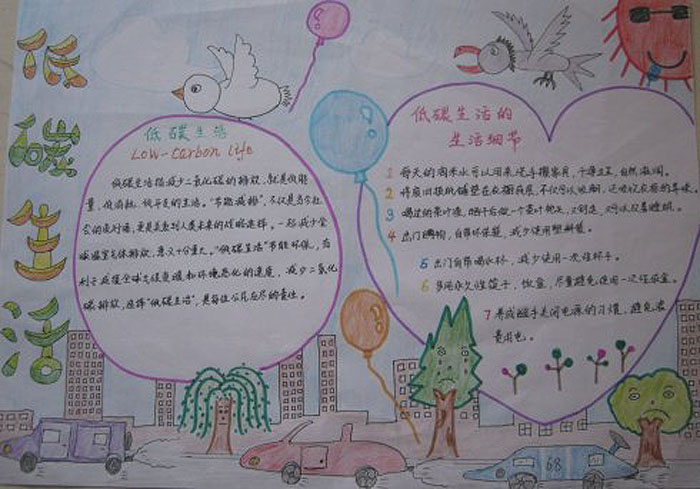 低碳生活
低碳生活
Low-carbon Life
低碳生活指减少二氧化碳的排放,就是低能
量、低消耗、低开支的生活。“节能减排”,不仅是当今社
会的流行语,更是关系到人类未来的战略选择。一起减少全
球温室气体排放,意义十分重大。“低碳生活”节能环保,有
利于减缓全球气候变暖和环境恶化的速度。减少二氧化
碳排放,选择“低碳生活”,是每位公民应尽的责任。
低碳生活的
生活细节
1 每天的淘米水可以用来洗手擦家具,干净卫生,自然滋润。
2 将废旧报纸铺垫在衣橱底层,不仅可以吸潮,还能吸衣柜的异味。
3 喝过的茶叶渣,晒干后做一个茶叶枕头,又舒适,又可以改善睡眠。
4 出门购物,自带环保袋,减少使用塑料袋。
5 出门自带喝水杯,减少使用一次性杯子。
6 多用永久性筷子,饭盒,尽量避免使用一次性饭盒。
7 养成随手关闭电源的习惯,避免浪
费用电。
68